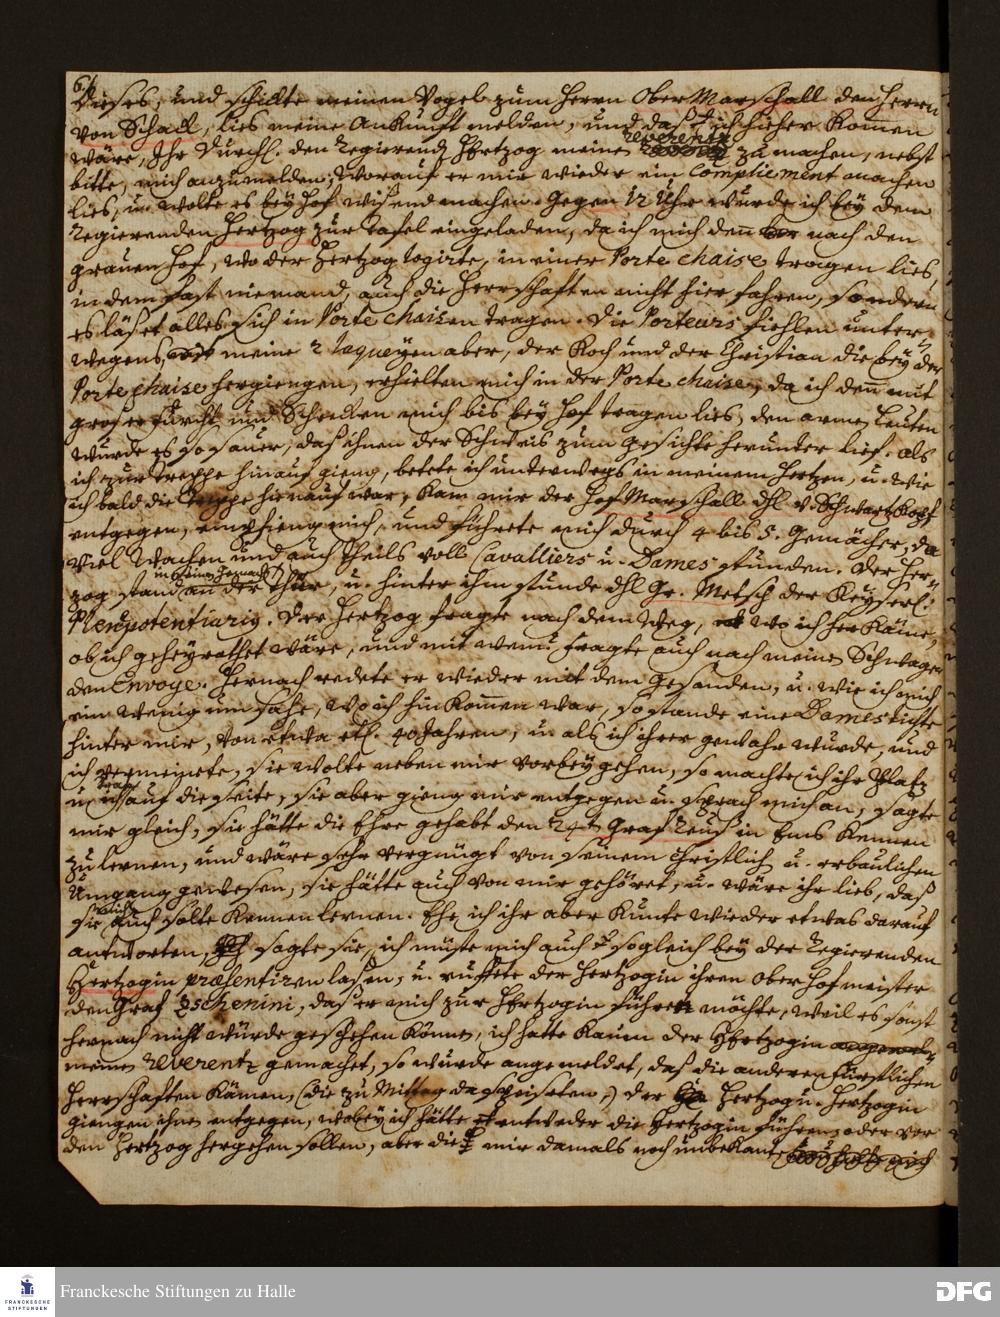 64
dieses, und schickte meinen Vogel zum Herrn Ober Marschall den Herrn
von Schall, lies meine Ankunft melden, und daß ich hieher kommen
wäre, Ihr Durchl. den Regierend Hertzog meine reverentz zu machen, nebst
bitte, mich anzumelden; Worauf er mir wieder ein Compliement machen
lies, u. wolte es bey Hof wißend machen. Gegen 12 Uhr wurde ich bey dem
Regierenden Hertzog zur Tafel eingeladen, da ich mich den nach den
grauen Hof, wo der Hertzog logirte, in einer Porte chaise tragen lies,
in dem fast niemand, auch die Herrschafften nicht hier fahren, sondern
es läßet alles sich in Porte chaisen tragen. Die Porteurs fiehlen unter-
wegens, meine 2 laqueyen aber, der Koch und der Christian die bey der
Porte chaise hergiengen, erhielten mich in der Porte chaise, da ich denn mit
großer Furcht und Schrecken mich bis bey Hof tragen lies, den armen Leuten
wurde es so sauer, daß ihnen der Schweis zum Gesichte herunter lief. Als
ich zur Treppe hinauf gieng, betete ich unterwegs in meinem Hertzen, u. wie
ich bald die Treppe hinauf war, kam mir der Hof Marschall dhl v. Schwartzkopf
entgegen, empfieng mich, und führete mich durch 4 bis 5. Gemächer, da
viel Wachen und auch theils voll Cavalliers u. Dames stunden. Der Her-
in seinem Gemach
zog stand an der Thür, u. hinter ihm stunde dhl Gr. Metsch der Keyserl.
Plenipotentiarig. Der Hertzog fragte nach dem Weg, wo ich her käme,
ob ich geheyrathet wäre, und mit wem? fragte auch nach meinen Schwager
den Envoye. Hernach redete er wieder mit dem Gesanden, u. wie ich mich
ein wenig um sahe, wo ich hin kommen war, so stande eine Dames dichte
hinter mir, von etwa etl. 40 Jahren, u. als ich ihrer gewahr wurde, und
ich vermeinete, sie wolte neben mir vorbey gehen, so machte ich ihr Platz
u. auf die Seite, sie aber gieng mir entgegen u. sprach mich an, sagte
mir gleich, sie hätte die Ehre gehabt den 24t. Graf Reuß in Ems kennen
zu lernen, und wäre sehr vergnügt von seinem Christlich u. erbaulichen
Umgang gewesen, sie hätte auch von mir gehöret, u. wäre ihr lieb, daß
sie mich auch solte kennen lernen. Ehe ich ihr aber kunte wieder etwas darauf
antworten, sagte sie, ich müste mich sogleich bey der Regierenden
Hertzogin præsentiren laßen, u. ruffete der Hertzogin ihren Ober Hofmeister
den Graf Zschenini, daß er mich zur Hertzogin führen möchte, weil es sonst
hernach nicht würde geschehen können, ich hatte kaum der Hertzogin
meinen reverentz gemachet, so wurde angemeldet, daß die anderen Fürstlichen
Herrschafften kämen, (die zu Mittag da speiseten,) der Hertzog u. Hertzogin
giengen ihnen entgegen, wobey ich hätte entweder die Hertzogin führen, oder vor
den Hertzog hergehen sollen, aber die mir damals noch unbekante
Franckesche Stiftungen zu Halle
FRANCKESCHE
STIFTUNGEN
DFG